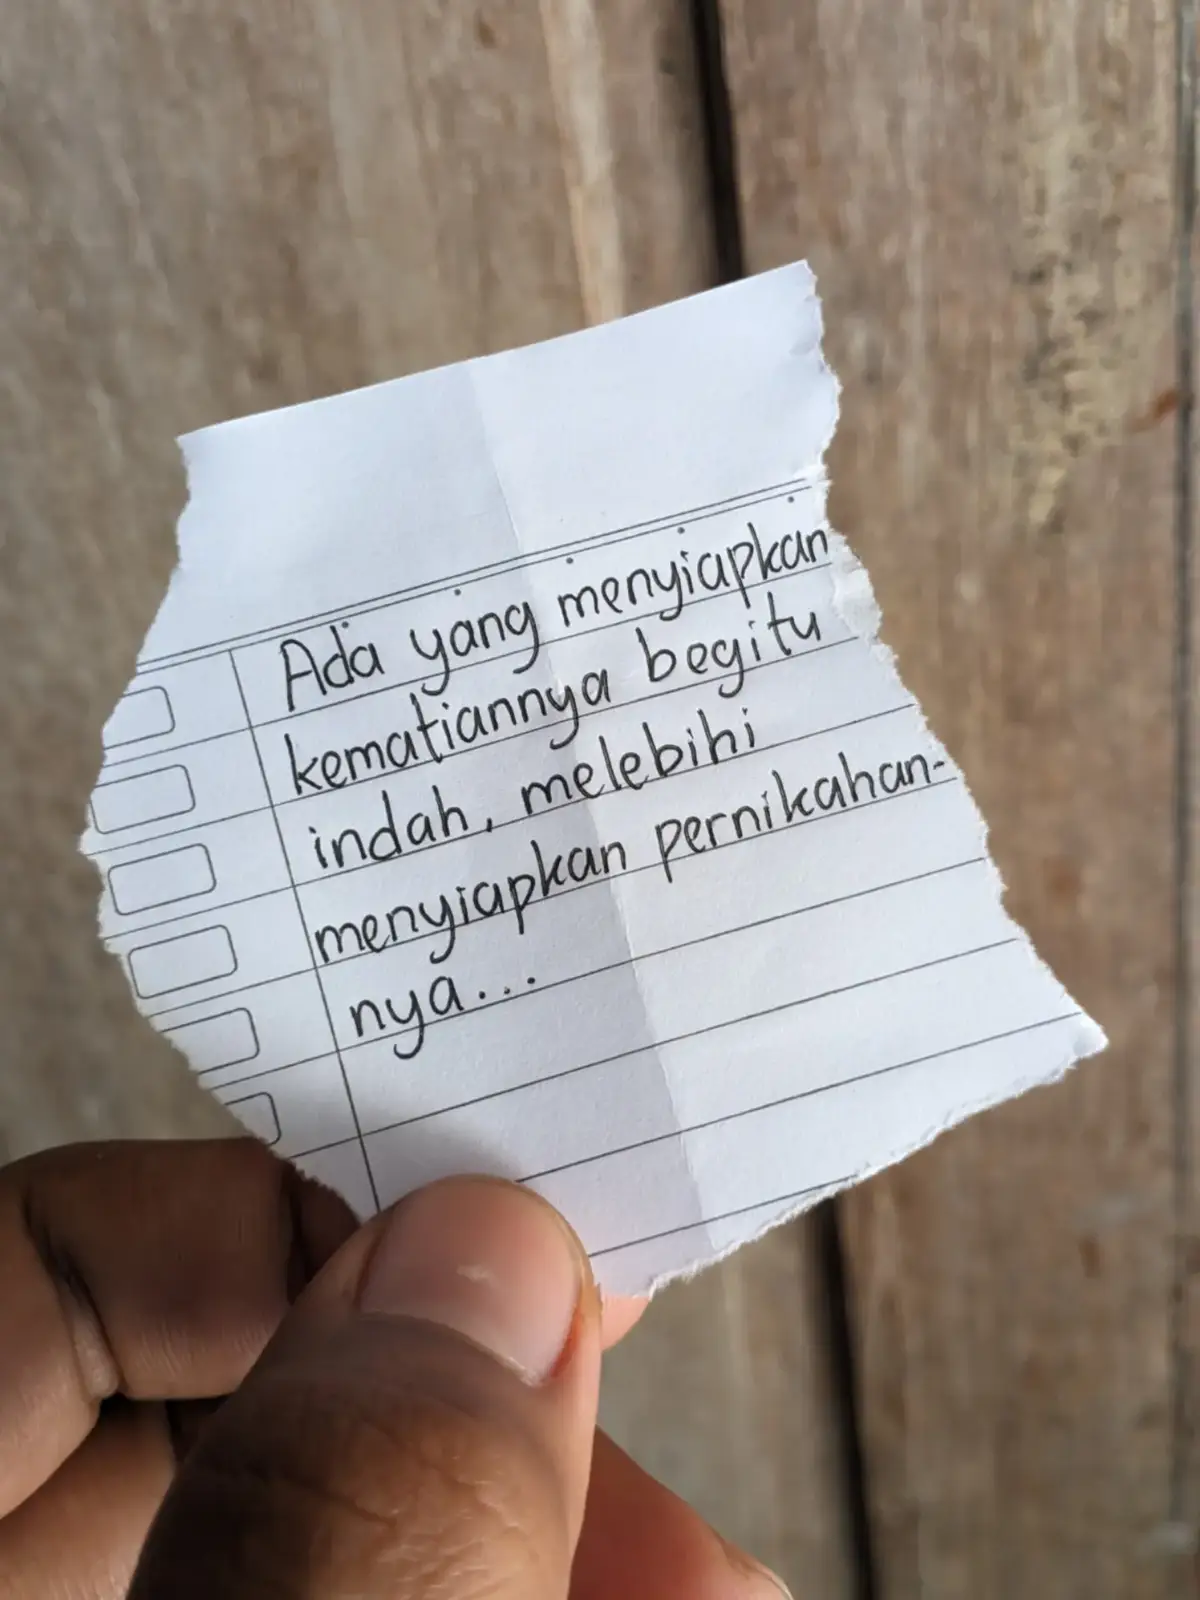 Ada yang menyiapkan
kematiannya begitu
indah, melebihi
menyiapkan pernikahan-
nya...